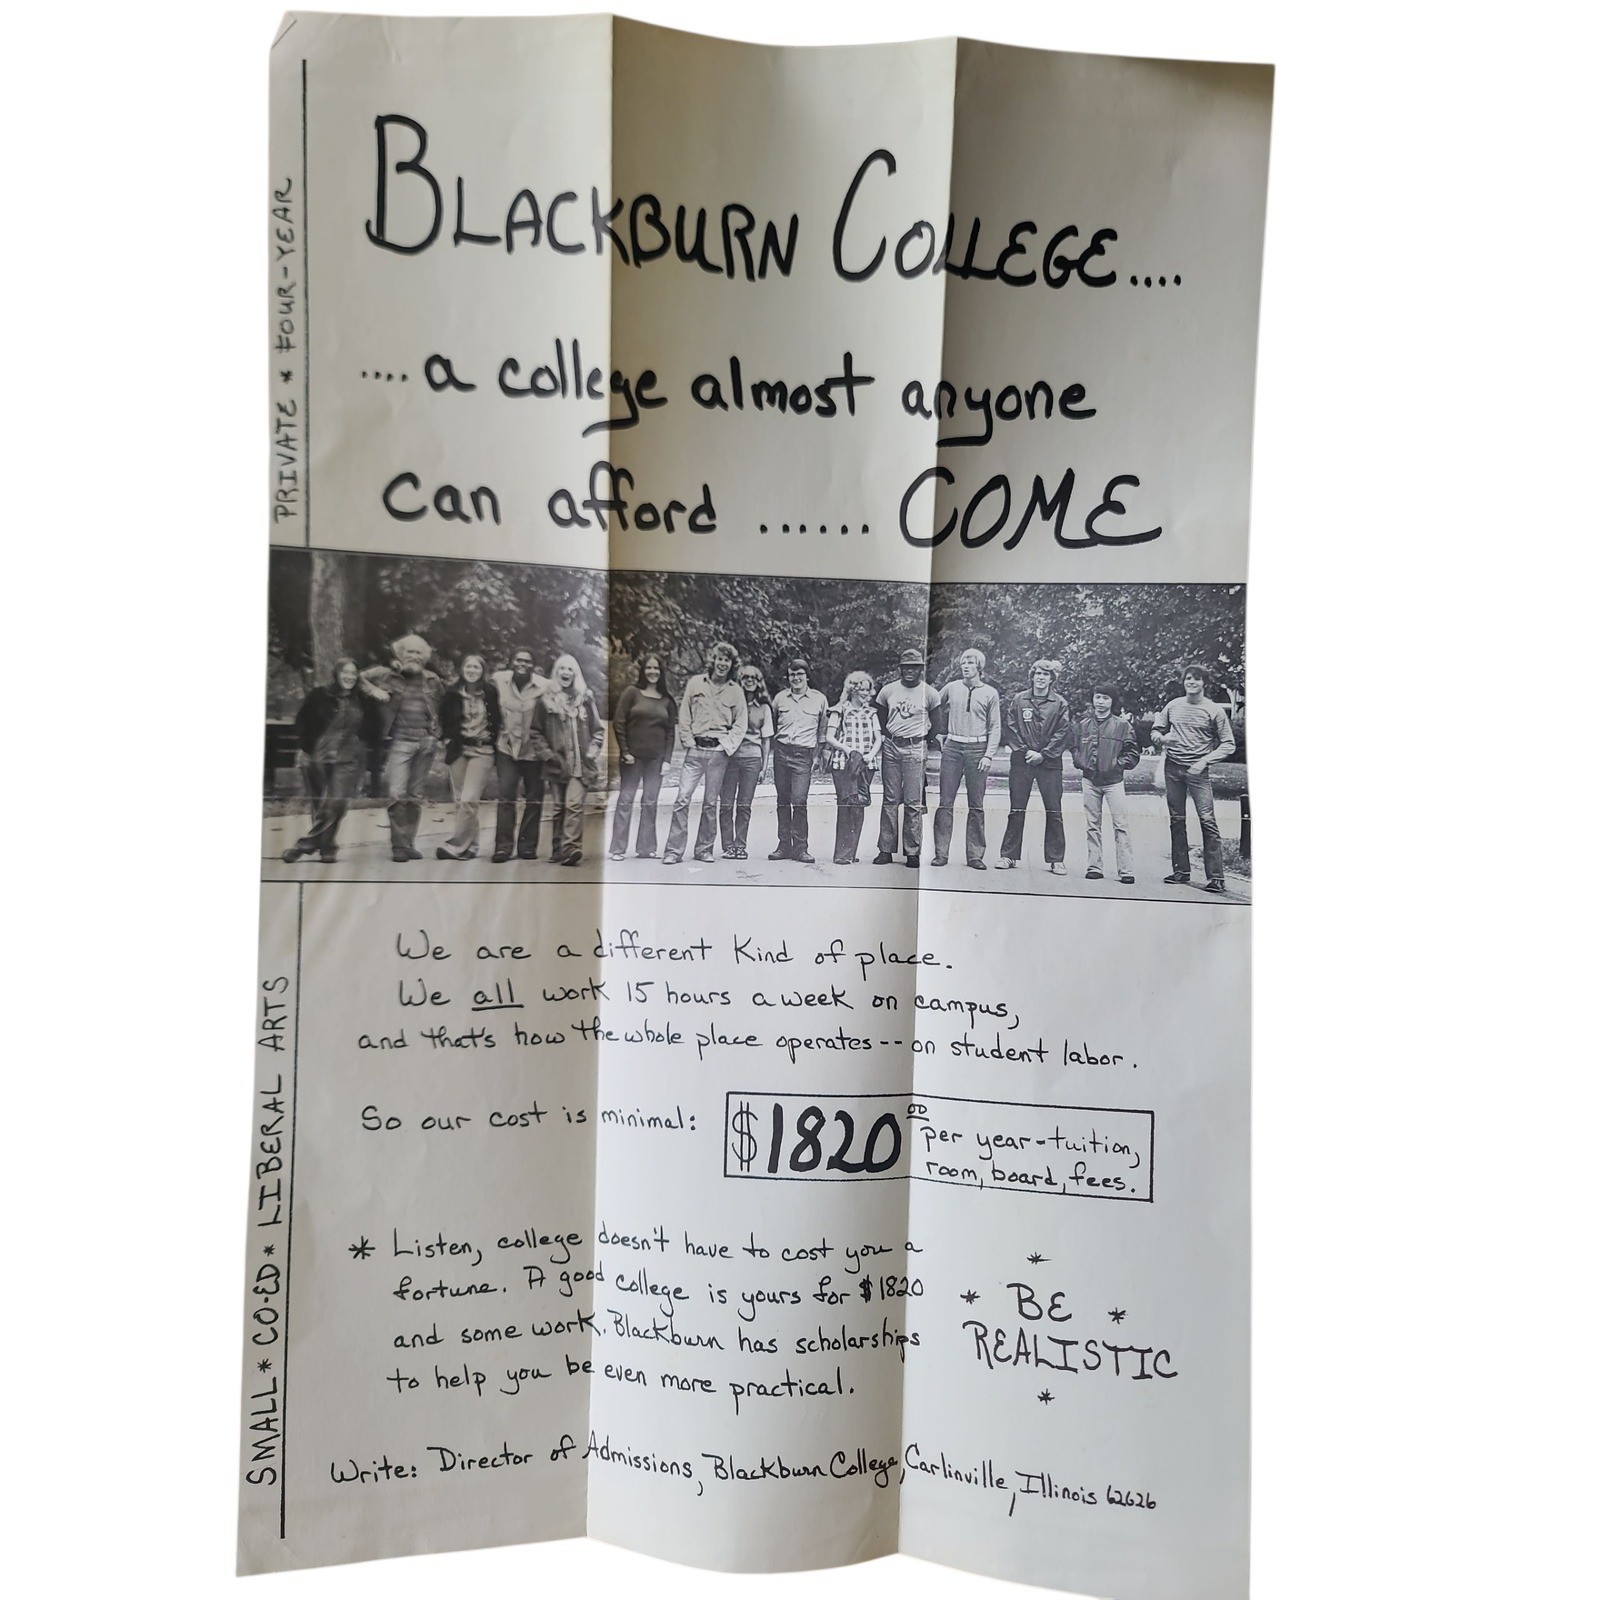 BLACKBURN COLLEGE....
....a college almost anyone
can afford ...... COME
PRIVATE * FOUR-YEAR
We are a different Kind of place.
We all work 15 hours a week on campus,
and that's how the whole place operates -- on student labor.
So our cost is minimal:
$1820.00 per year-tuition,
room, board, fees.
* Listen, college doesn't have to cost you a
fortune. A good college is yours for $1820
and some work. Blackburn has scholarships
to help you be even more practical.
* BE *
REALISTIC
*
Write: Director of Admissions, Blackburn College, Carlinville, Illinois 62626
SMALL * CO-ED * LIBERAL ARTS